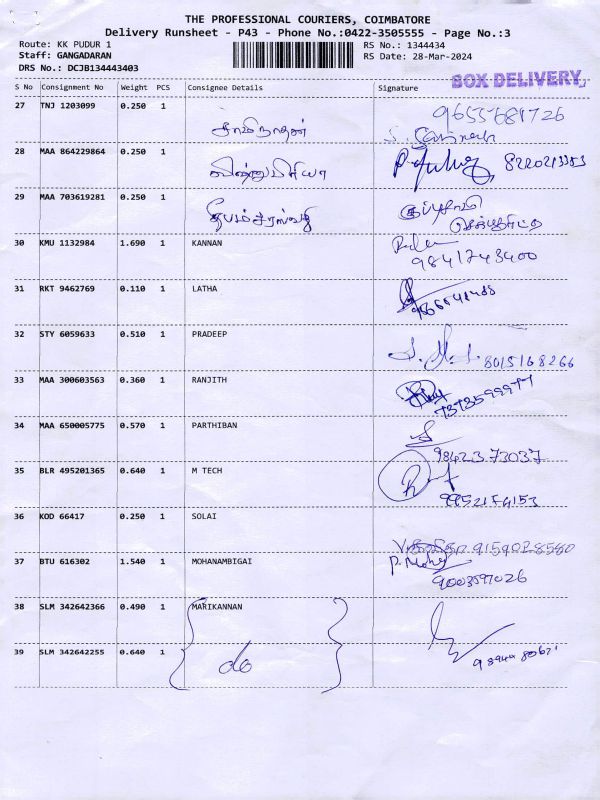 THE PROFESSIONAL COURIERS, COIMBATORE
Delivery Runsheet - P43 - Phone No.:0422-3505555 - Page No.:3
Route: KK PUDUR 1 RS No.: 1344434
Staff: GANGADARAN RS Date: 28-Mar-2024
DRS No.: DCJB134443403
BOX DELIVERY
S No Consignment No Weight PCS Consignee Details Signature
27 TNJ 1203099 0.250 1 சாமிநாதன் 9655681726
28 MAA 864229864 0.250 1 விஷ்ணுபிரியா
29 MAA 703619281 0.250 1
30 KMU 1132984 1.690 1 KANNAN
9841743400
31 RKT 9462769 0.110 1 LATHA
32 STY 6059633 0.510 1 PRADEEP
8015168266
33 MAA 300603563 0.360 1 RANJITH
34 MAA 650005775 0.570 1 PARTHIBAN
9842373037
35 BLR 495201365 0.640 1 M TECH
36 KOD 66417 0.250 1 SOLAI
9159028580
37 BTU 616302 1.540 1 MOHANAMBIGAI P. Moha
9003597026
38 SLM 342642366 0.490 1 MARIKANNAN
39 SLM 342642255 0.640 1 do